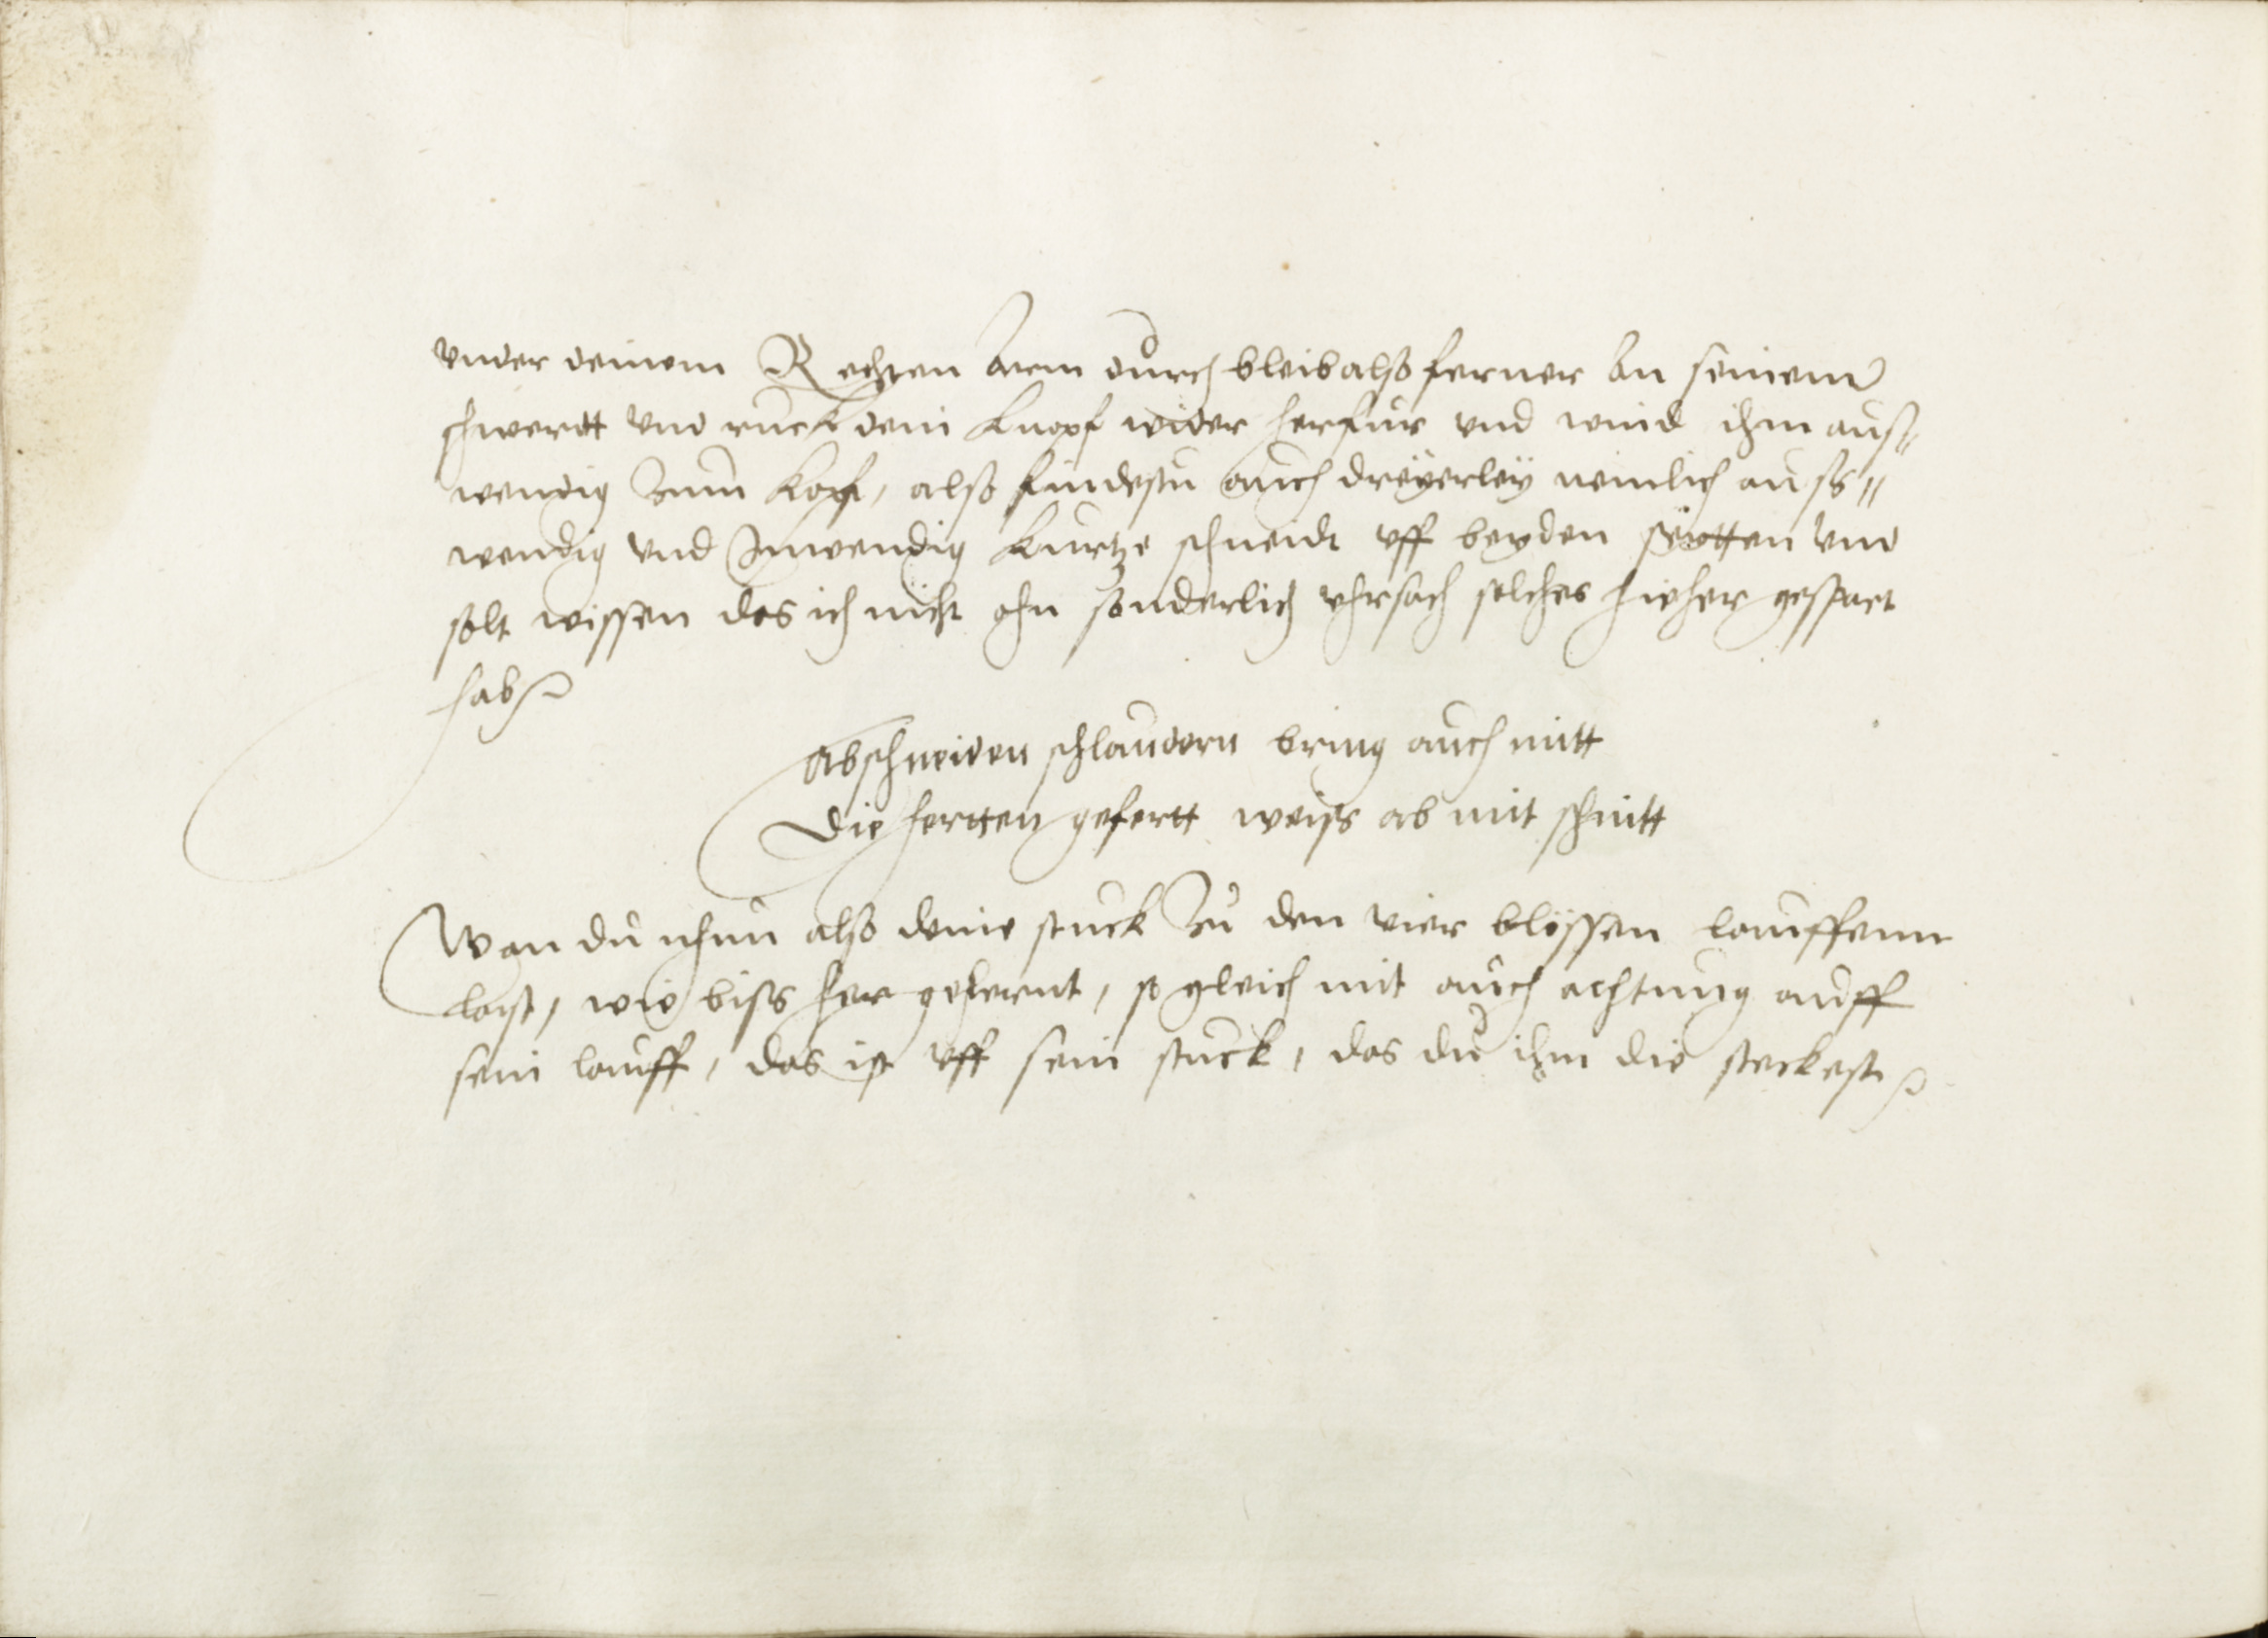 vnder deinem Rechten Arm durch bleib also ferner An seinem
schwertt vnd ruck dein Knopf wider herfur vnd wind ihm aus=
wendig Zum Kopf, also findestu auch dreÿerleÿ nemlich auss=
wendig vnd Inwendig Kurtze schneidt vff beyden seÿtten vnd
solt wissen das ich nicht ohn sonderlich vhrsach solches hieher gespart
hab
Abschneiden schlaudern bring auch mitt
Die hertten gefertt weiss ab mit schnitt
Wan du nhun also deine stuck Zu den vier blössen lauffenn
last, wie biss her gelernt, so gleich mit auch achtung auff
sein lauff, das ist vff sein stuck, das du ihm die steckest